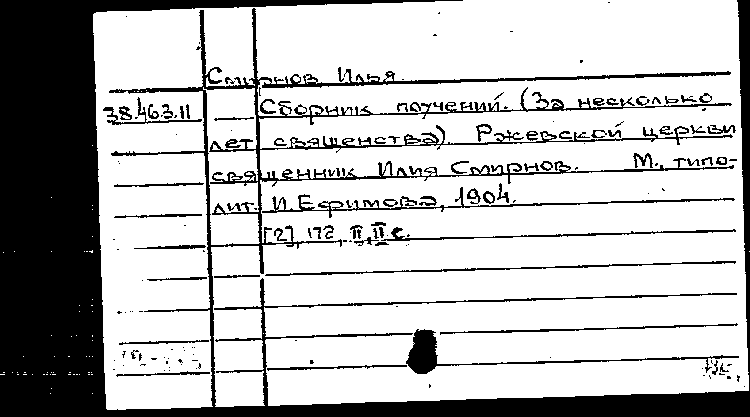 Смирнов, Илья.
38.463.11 Сборник поучений. (За несколько
лет священства). Ржевской церкви
священник Илия Смирнов. М., типо-
лит. И. Ефимова, 1904.
[2], 172, II, II с.